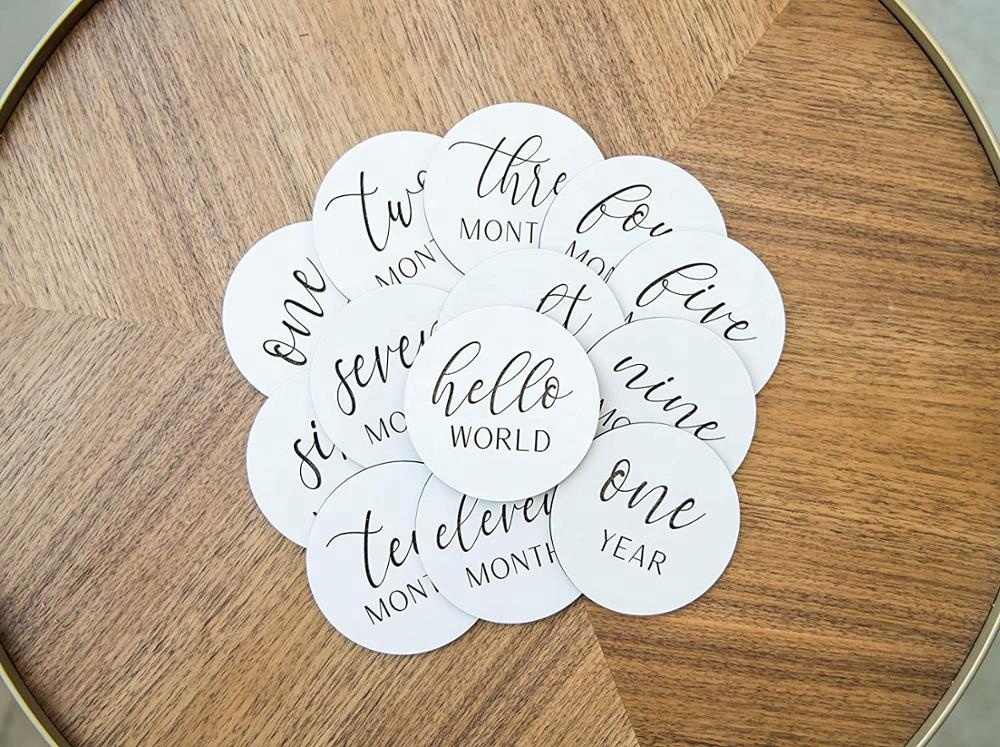 thre
MONT
two
MONT
fou
MON
one
five
seven
MO
nine
MO
hello
WORLD
si
ten
MONT
eleven
MONTH
one
YEAR